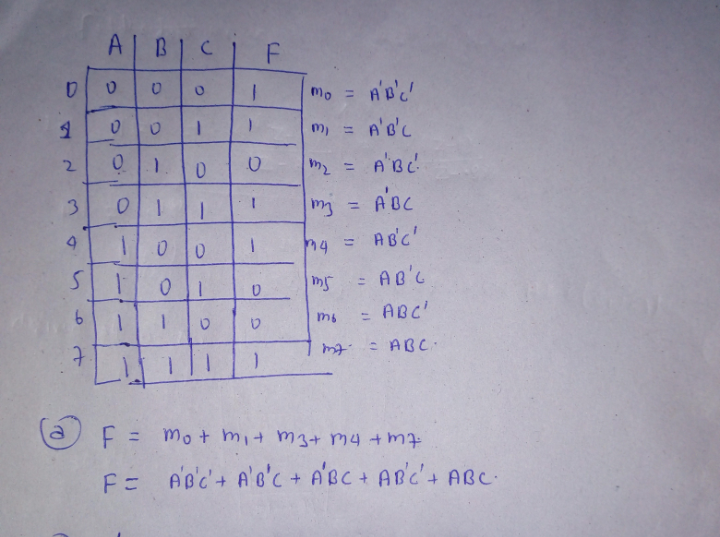 A B C F
0 0 0 0 1 m0 = A'B'C'
1 0 0 1 1 m1 = A'B'C
2 0 1 0 0 m2 = A'BC'
3 0 1 1 1 m3 = A'BC
4 1 0 0 1 m4 = AB'C'
5 1 0 1 0 m5 = AB'C
6 1 1 0 0 m6 = ABC'
7 1 1 1 1 m7 = ABC.
(a) F = m0 + m1 + m3 + m4 + m7
F = A'B'C' + A'B'C + A'BC + AB'C' + ABC.